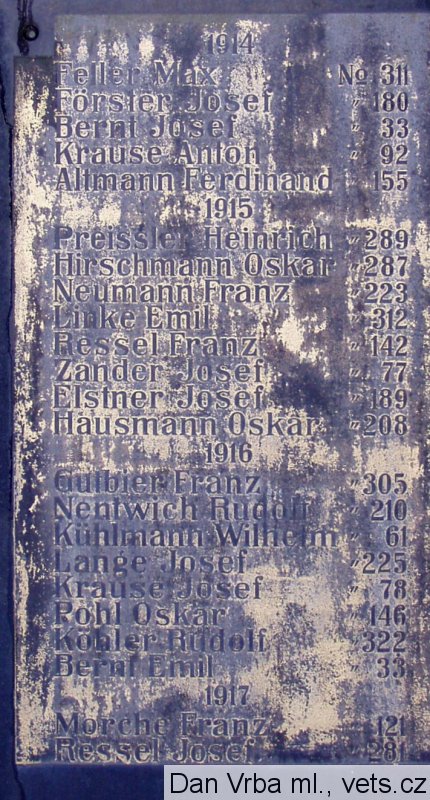 1914
Feller Max No 311
Förster Josef " 180
Bernt Josef " 33
Krause Anton " 92
Altmann Ferdinand " 155
1915
Preissler Heinrich " 289
Hirschmann Oskar " 287
Neumann Franz " 223
Linke Emil " 312
Ressel Franz " 142
Zander Josef " 77
Elstner Josef " 189
Hausmann Oskar " 208
1916
Gulbier Franz " 305
Nentwich Rudolf " 210
Kühlmann Wilhelm " 61
Lange Josef " 225
Krause Josef " 78
Pohl Oskar " 146
Köhler Rudolf " 322
Bernt Emil " 33
1917
Morche Franz " 121
Ressel Josef " 281
Dan Vrba ml., vets.cz